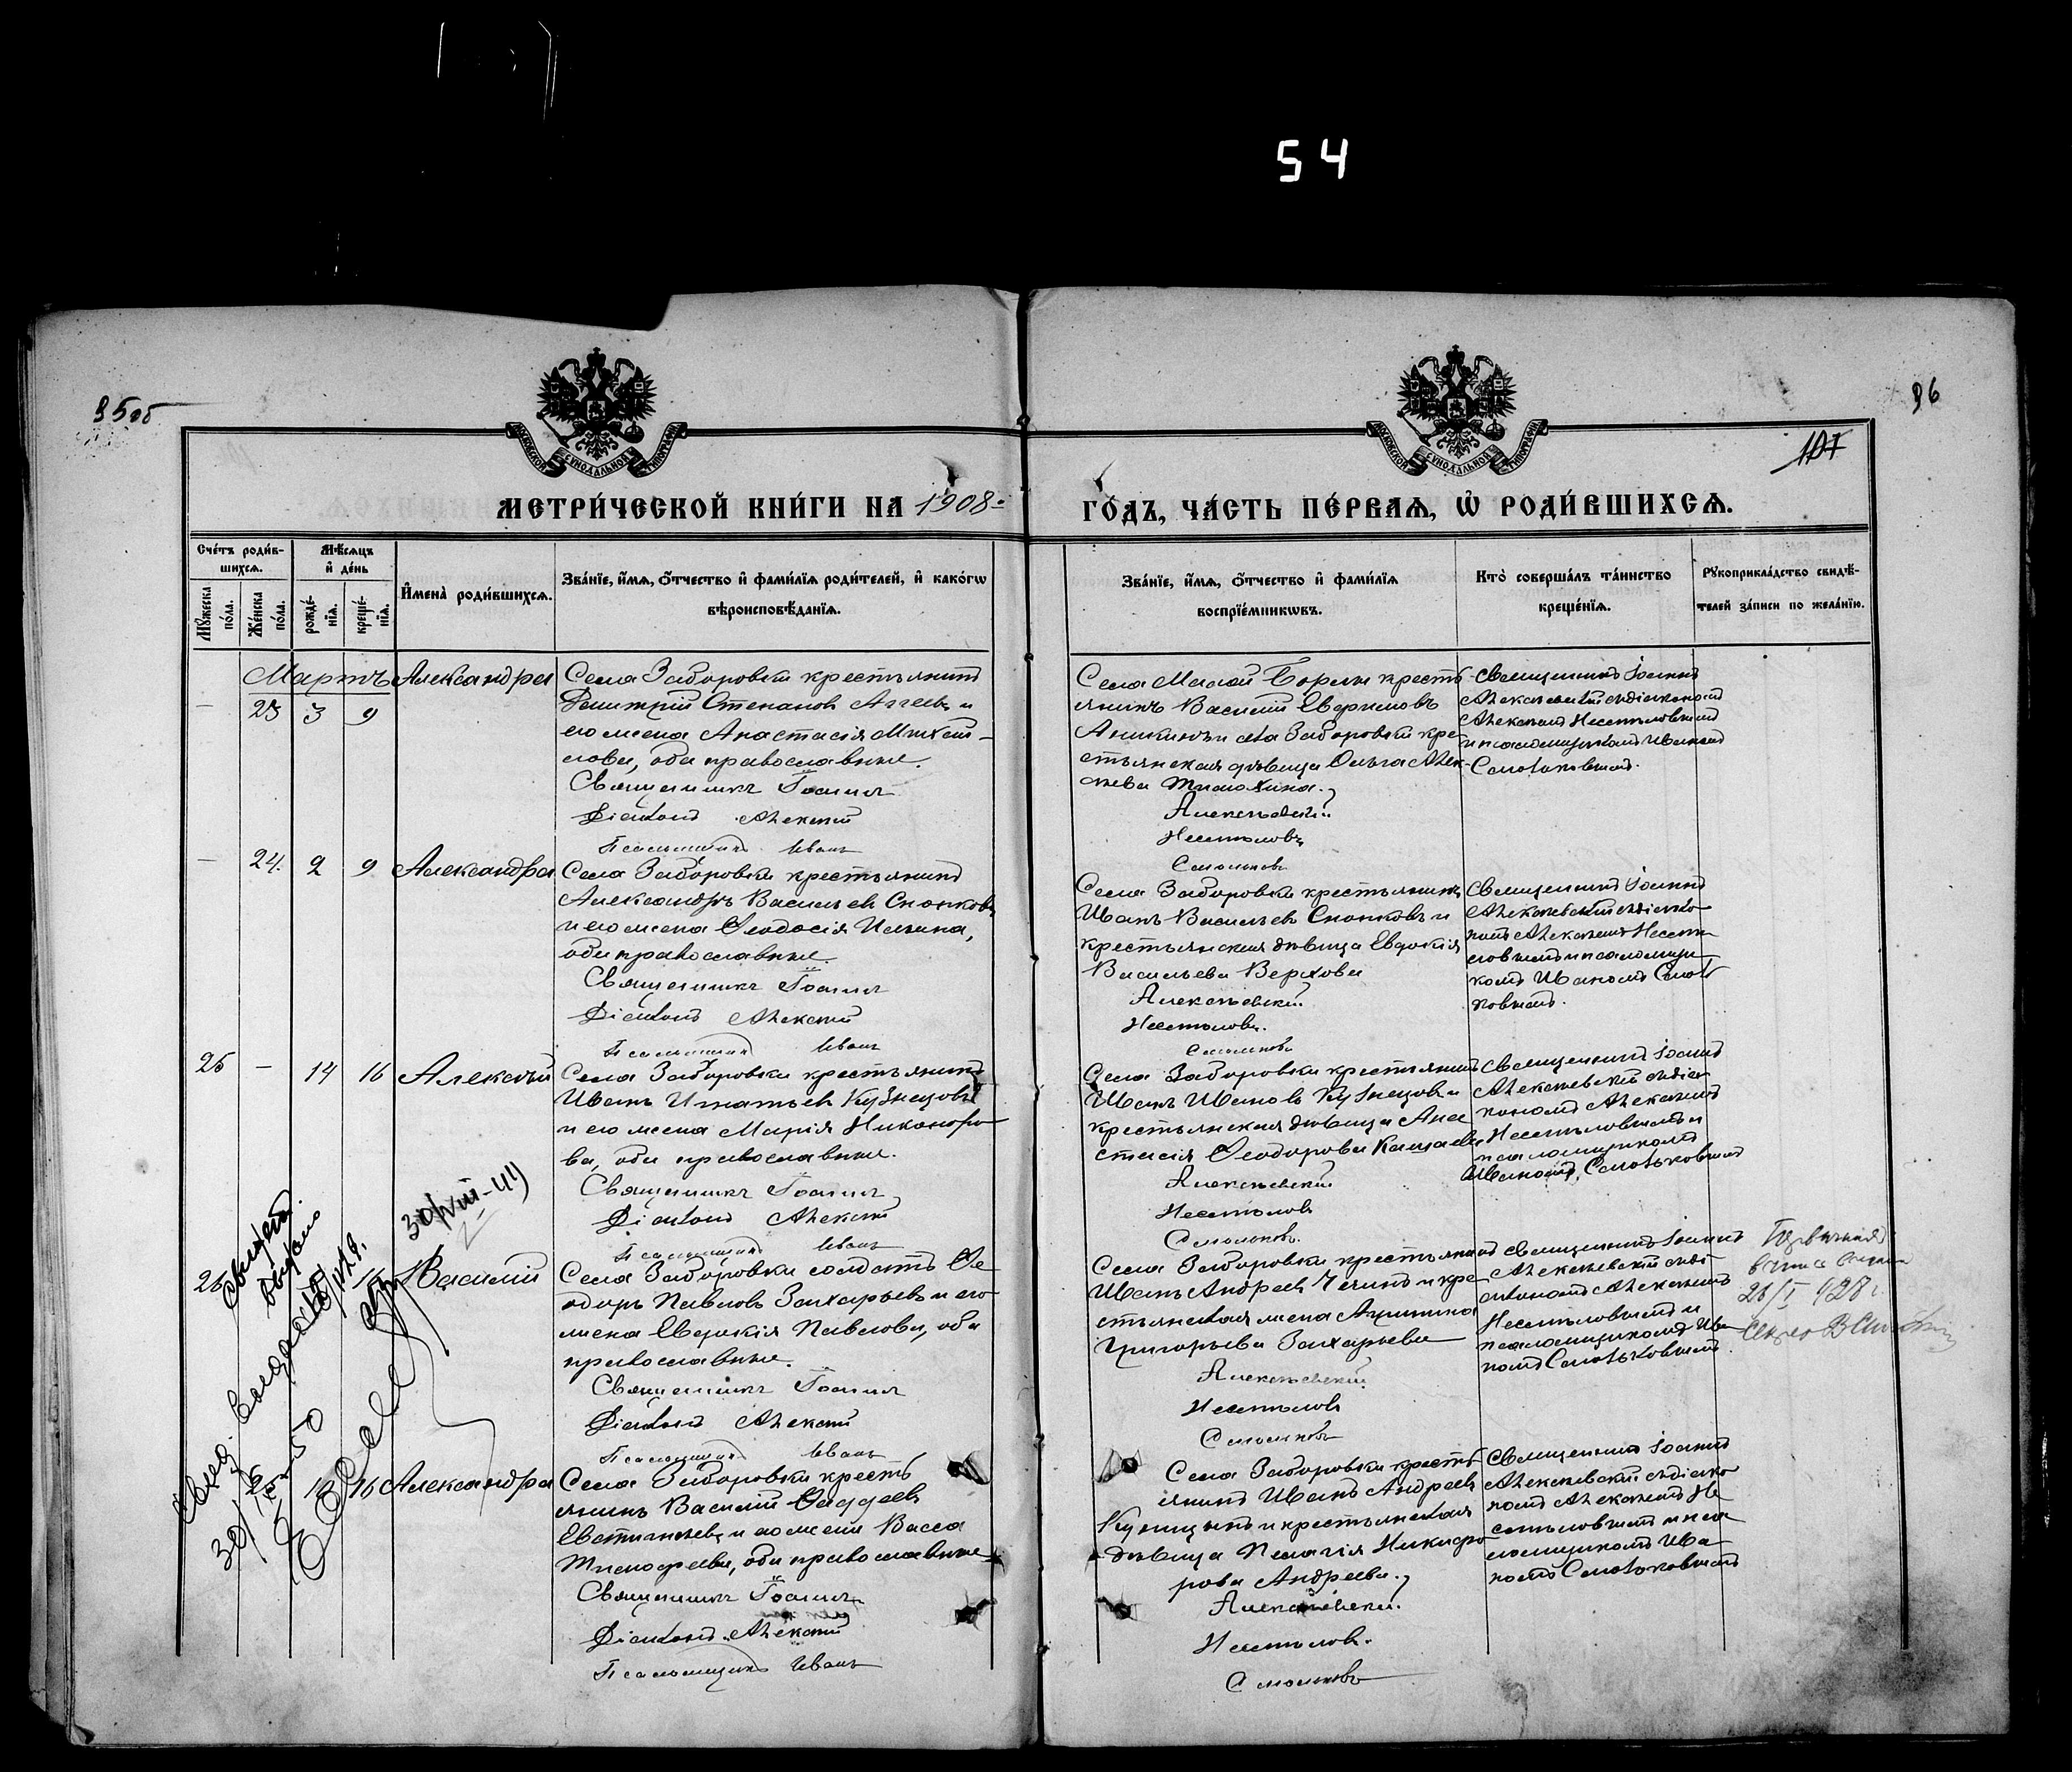 54
95об
96
107
МОСКОВСКОЙ СѴНОДАЛЬНОЙ ТИПОГРАФІИ
МОСКОВСКОЙ СѴНОДАЛЬНОЙ ТИПОГРАФІИ
МЕТРИ́ЧЕСКОЙ КНИ́ГИ НА 1908
ГО́ДЪ, ЧА́СТЬ ПЕ́РВАѦ, Ѡ҆ РОДИ́ВШИХСѦ.
Сче́тъ роди́в-
шихсѧ.
Мꙋ́жеска по́ла.
Же́нска по́ла.
Мѣ́сѧцъ
и҆ де́нь
рожде́-нїѧ.
креще́-нїѧ.
И҆мена̀ роди́вшихсѧ.
Зва́нїе, и҆́мѧ, ѻ҆́тчество и҆ фами́лїѧ роди́телей, и҆ како́гѡ
вѣроисповѣ́данїѧ.
Зва́нїе, и҆́мѧ, ѻ҆́тчество и҆ фами́лїѧ
воспрїе́мникѡвъ.
Кто̀ соверша́лъ та́инство
креще́нїѧ.
Рꙋкоприкла́дство свидѣ́-
телей за́писи по жела́нїю.
Мартъ
– 23 3 9 Александра
Села Заборовки крестьянинъ
Димитрій Степановъ Аггеевъ и
его жена Анастасія Михай-
лова, оба православные.
Священникъ Іоаннъ
Діаконъ Алексій
Псаломщикъ Иванъ
Села Малой Борлы кресть-
янинъ Василій Евфимовъ
Аникинъ и села Заборовки кре-
стьянская дѣвица Ольга Алек-
сѣева Тимохина.
Алексѣевскій
Несмѣловъ
Смольковъ
Священникъ Іоаннъ
Алексѣевскій съ діакономъ
Алексіемъ Несмѣловымъ
и псаломщикомъ Иваномъ
Смольковымъ.
– 24. 2 9 Александра
Села Заборовки крестьянинъ
Александръ Васильевъ Снопковъ
и его жена Ѳеодосія Ильина,
оба православные.
Священникъ Іоаннъ
Діаконъ Алексій
Псаломщикъ Иванъ
Села Заборовки крестьянинъ
Иванъ Васильевъ Снопковъ и
крестьянская дѣвица Евдокія
Васильева Верхова
Алексѣевскій
Несмѣловъ.
Смольковъ
Священникъ Іоаннъ
Алексѣевскій съ діако-
номъ Алексіемъ Несмѣ-
ловымъ и псаломщи-
комъ Иваномъ Смоль-
ковымъ.
25 – 14 16 Алексѣй
Села Заборовки крестьянинъ
Иванъ Игнатьевъ Кузнецовъ
и его жена Марія Никоноро-
ва, оба православные.
Священникъ Іоаннъ
Діаконъ Алексій
Псаломщикъ Иванъ
Села Заборовки крестьянинъ
Иванъ Ивановъ Кузнецовъ и
крестьянская дѣвица Ана-
стасія Ѳеодорова Кащаева
Алексѣевскій
Несмѣловъ
Смольковъ.
Священникъ Іоаннъ
Алексѣевскій съ діа-
кономъ Алексіемъ
Несмѣловымъ и
псаломщикомъ
Иваномъ Смольковымъ
30/VIII-44
26 Василій
Села Заборовки солдатъ Ѳе-
одоръ Павловъ Захарьевъ и его
жена Евдокія Павлова, оба
православные.
Священникъ Іоаннъ
Діаконъ Алексій
Псаломщикъ Иванъ
Села Заборовки крестьянинъ
Иванъ Андреевъ и кре-
стьянская жена
Григорьева Захарьева
Алексѣевскій
Несмѣловъ
Смольковъ
Священникъ Іоаннъ
Алексѣевскій съ ді-
акономъ Алексіемъ
Несмѣловымъ и
псаломщикомъ Ива-
номъ Смольковымъ
26/I 1928 г.
30/IX-50
16 Александра
Села Заборовки кресть-
янинъ Василій Ѳаддеевъ
Евстигнѣевъ и его жена Васса
Тимофеева, оба православные
Священникъ Іоаннъ
Діаконъ Алексій
Псаломщикъ Иванъ
Села Заборовки кресть-
янинъ Иванъ Андреевъ
Куницынъ и крестьянская
дѣвица Пелагія Никифо-
рова Андреева.
Алексѣевскій.
Несмѣловъ.
Смольковъ
Священникъ Іоаннъ
Алексѣевскій съ діако-
номъ Алексіемъ Не-
смѣловымъ и пса-
ломщикомъ Ива-
номъ Смольковымъ